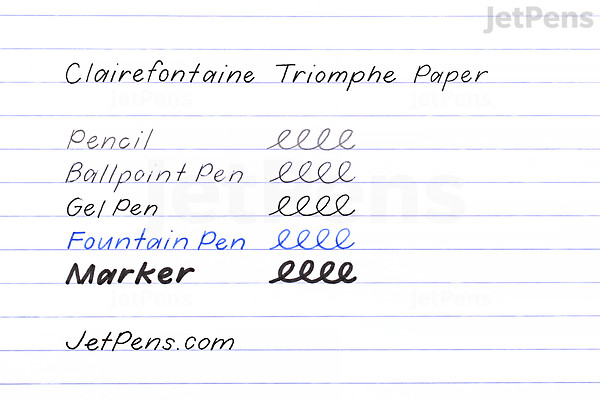 JetPens
Clairefontaine Triomphe Paper
Pencil
Ballpoint Pen
Gel Pen
Fountain Pen
Marker
JetPens.com